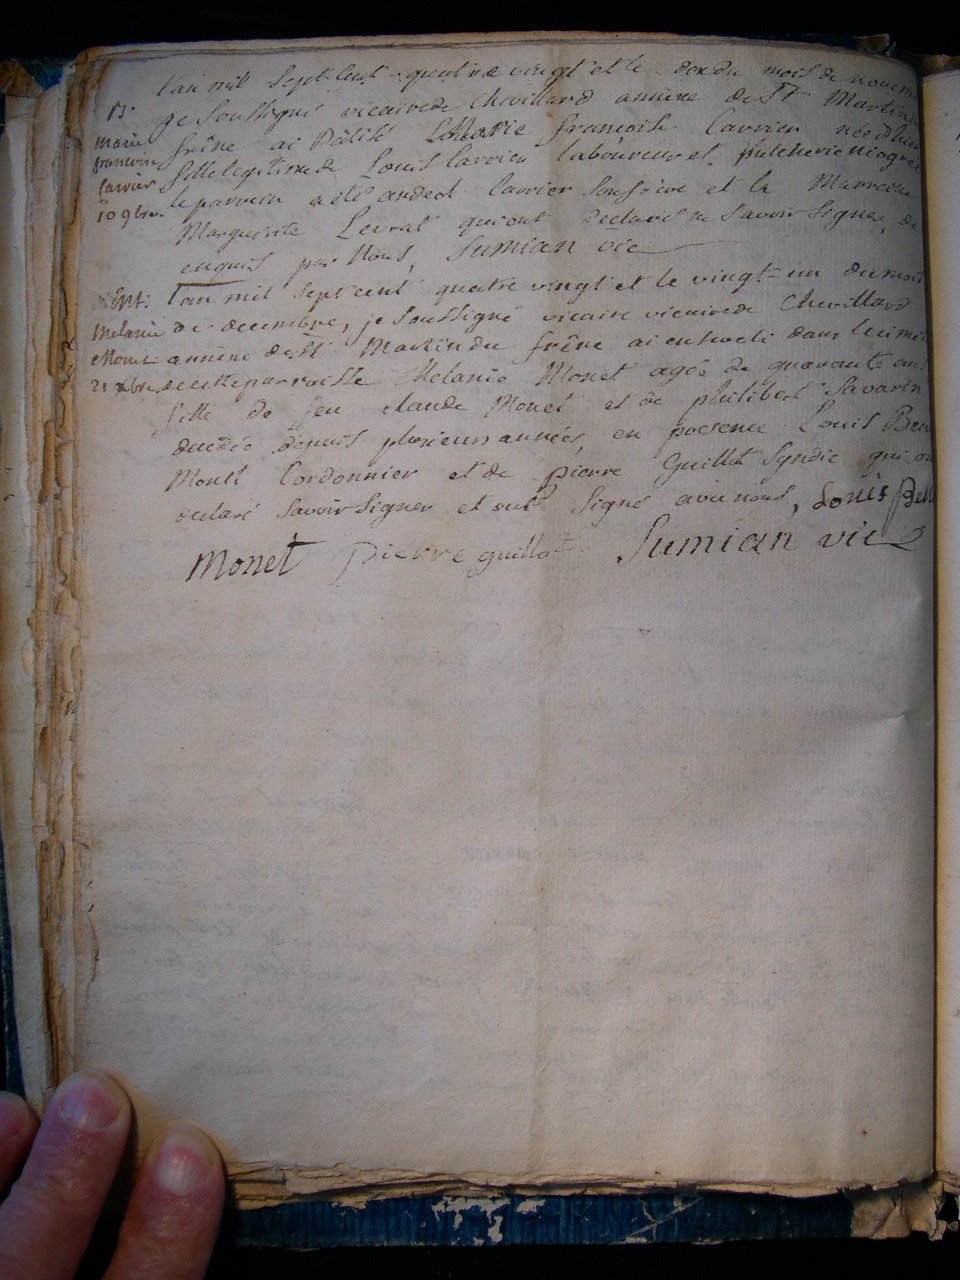 l'an mil sept cent quatre vingt et le dix du mois de novem
B. je soussigné vicaire de Chevillard annèxe de St Martin du
marie françoise Carrier 10 9bre.
frêne ai Bâtisé Marie françoise Carrier née d'hier
fille legitime de Louis Carrier laboureur et pulcherie niogret
le parrein a été andeol Carrier son frère et la Marreine
Marguerite Levrat qui ont declaré ne savoir signer, de
enquis par Nous, Sumian vic
Ent. l'an mil sept cent quatre vingt et le vingt-un du mois
Melanie Monet 21 Xbre
de decembre, je soussigné vicaire vicaire de Chevillard
annèxe de St Martin du frêne ai enseveli dans le cimet
de cette parroisse Melanie Monet agée de quarante ans
fille de feu claude Monet et de philibert Savarin
decedée depuis plusieurs années, en presence Louis Bel
Mont Cordonnier et de pierre Guillot Syndic qui on
declaré savoir signer et ont signé avec nous, Louis Bell
Monet pierre guillot Sumian vic